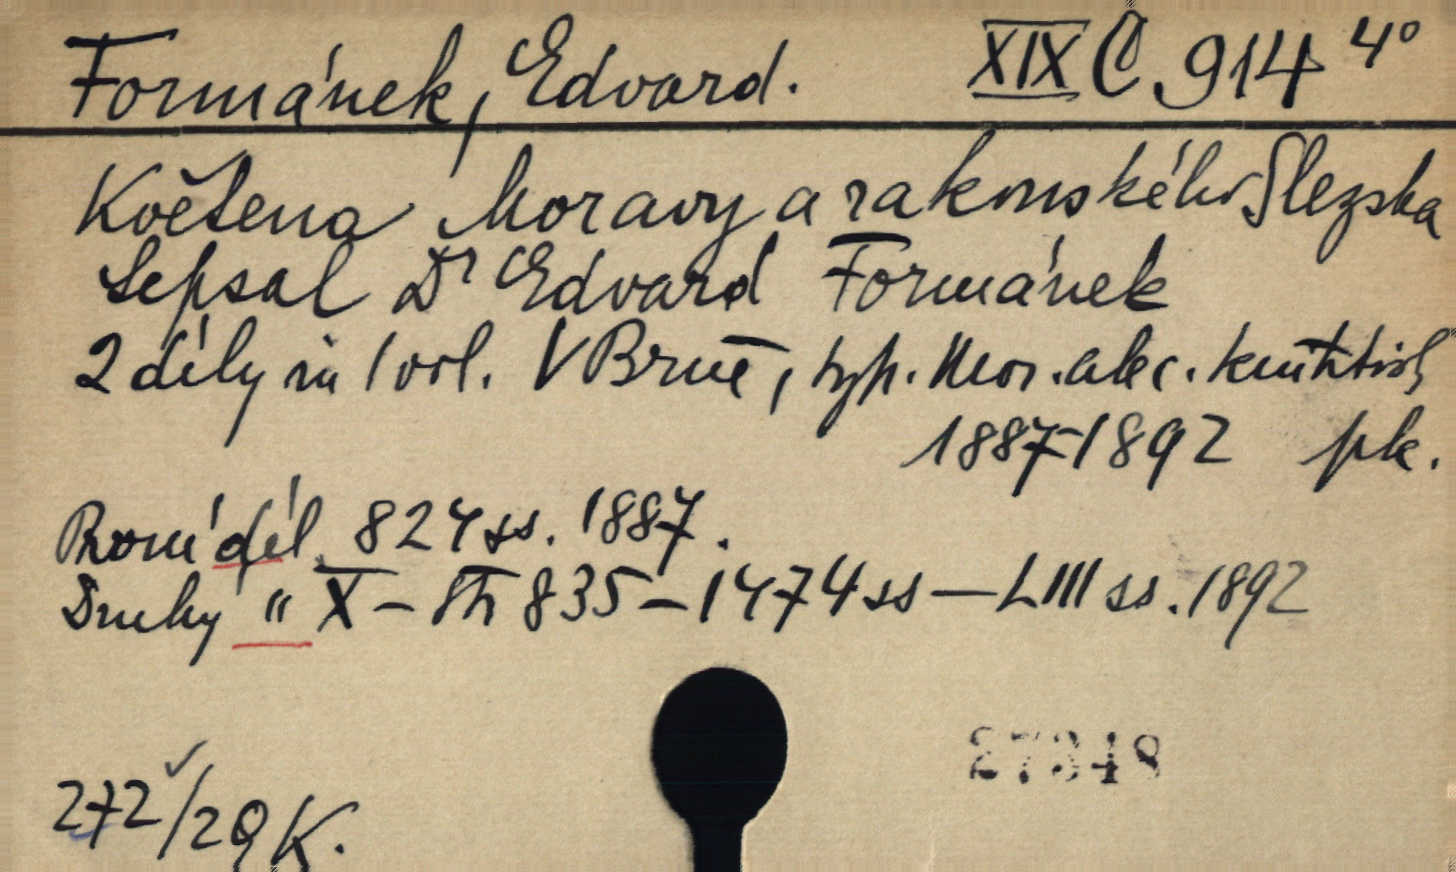 Formánek, Edvard. XIX C. 914 4°
Květena Moravy a rakouského Slezska
Sepsal Dr Edvard Formánek
2 díly in 1 vol. V Brně, typ. Mor. akc. knihtisk
1887-1892 pk.
První díl. 824 ss. 1887.
Druhý " X - str 835 - 1474 ss - LIII ss. 1892
27348
272/29 K.